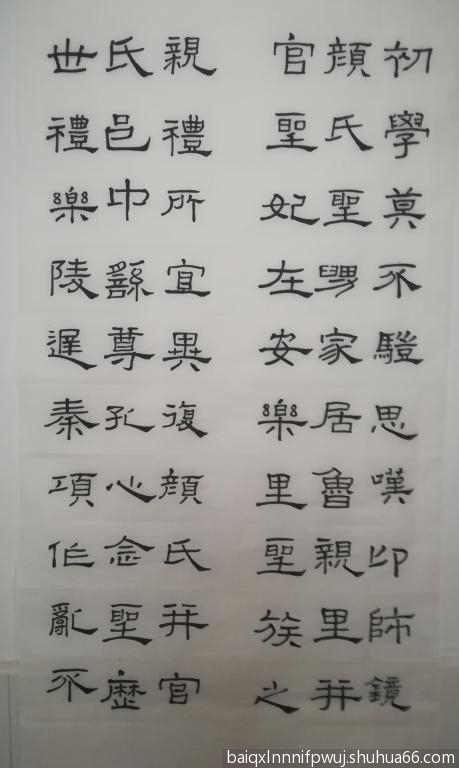 初學莫不騐思嘆卬師鏡
顏氏聖舅家居魯親里并
官聖妃在安樂里聖族之
親禮所宜異復顏氏并官
氏邑中繇尊孔心念聖歷
世禮樂陵遲秦項作亂不
baiqxlnnnifpwuj.shuhua66.com